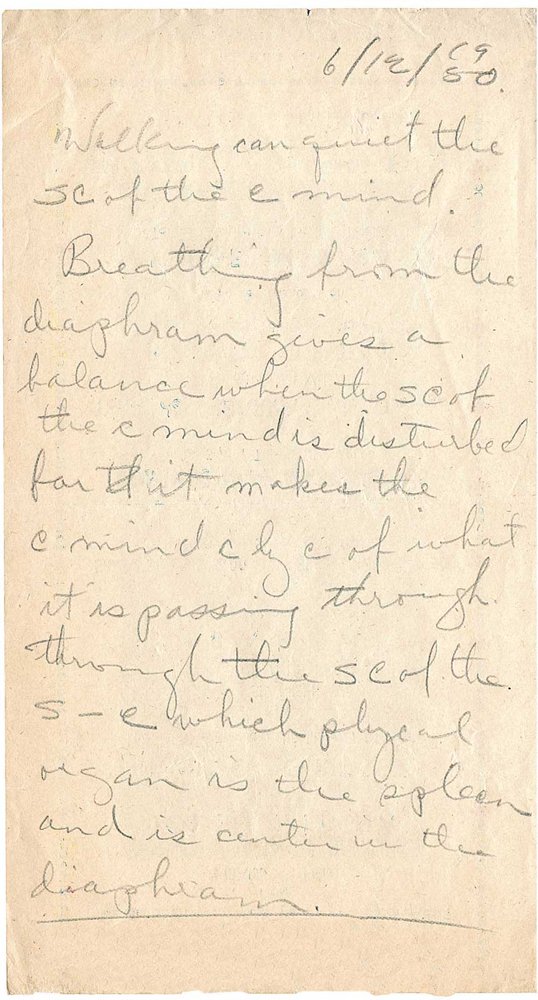 6/12/19
50.
Walking can quiet the
SC of the c mind.
Breathing from the
diaphram gives a
balance when the SC of
the c mind is disturbed
for it makes the
c mind c ly c of what
it is passing through.
through the SC of the
S-C which phycal
organ is the spleen
and is center in the
diaphram.